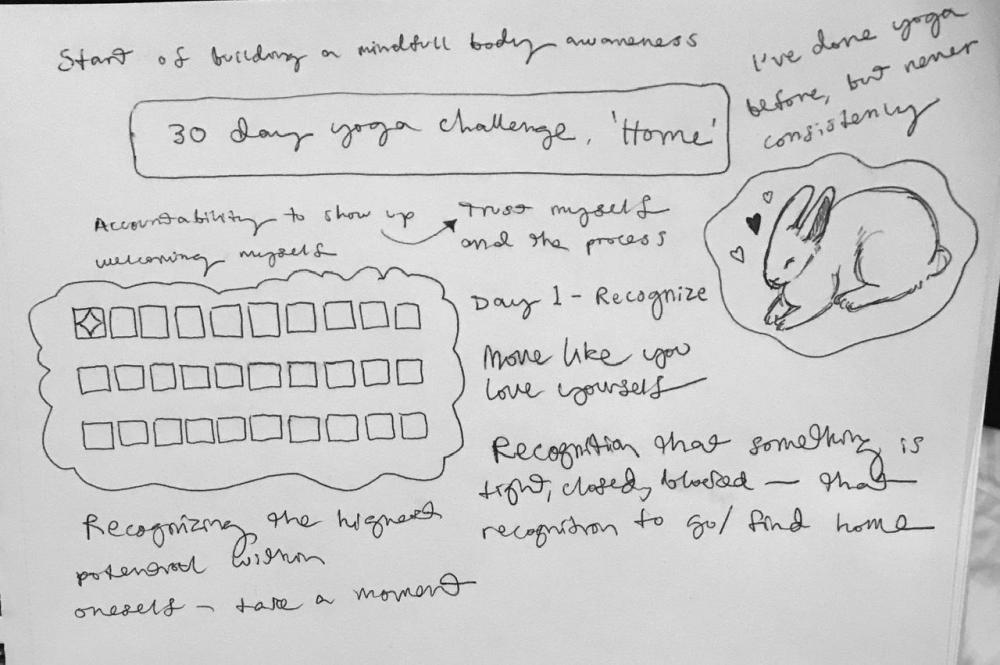 Start of building a mindfull body awareness
I've done yoga
before, but never
consistency
30 day yoga challenge, 'Home'
Accountability to show up
welcoming myself
Trust myself
and the process
Day 1 - Recognize
Move like you
love yourself
Recognition that something is
tight, closed, blocked — that
recognition to go/find home
Recognizing the highest
potential within
oneself - take a moment